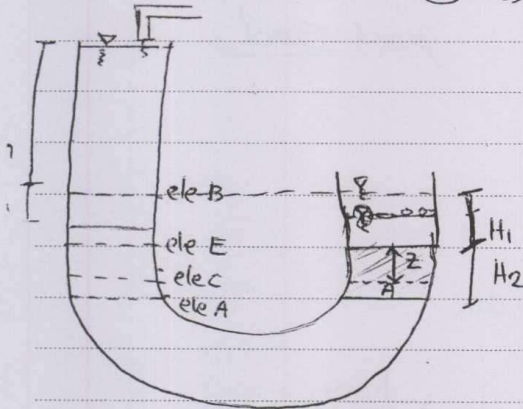 ele B
ele E
ele C
ele A
Z
A
H1
H2